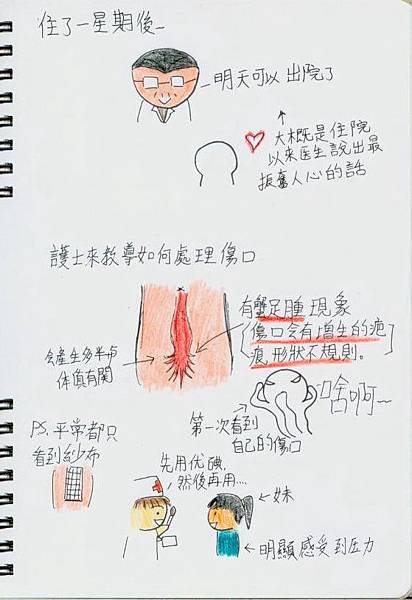 住了一星期後_
明天可以出院了
大概是住院
以來医生說出最
振奮人心的話
護士來教導如何處理傷口
有蟹足腫現象
傷口会有增生的疤
痕,形狀不規則。
会產生多半与
体質有関
啥啊~
第一次看到
自己的傷口
PS.平常都只
看到紗布
先用优碘,
然後再用....
妹
明顯感受到压力